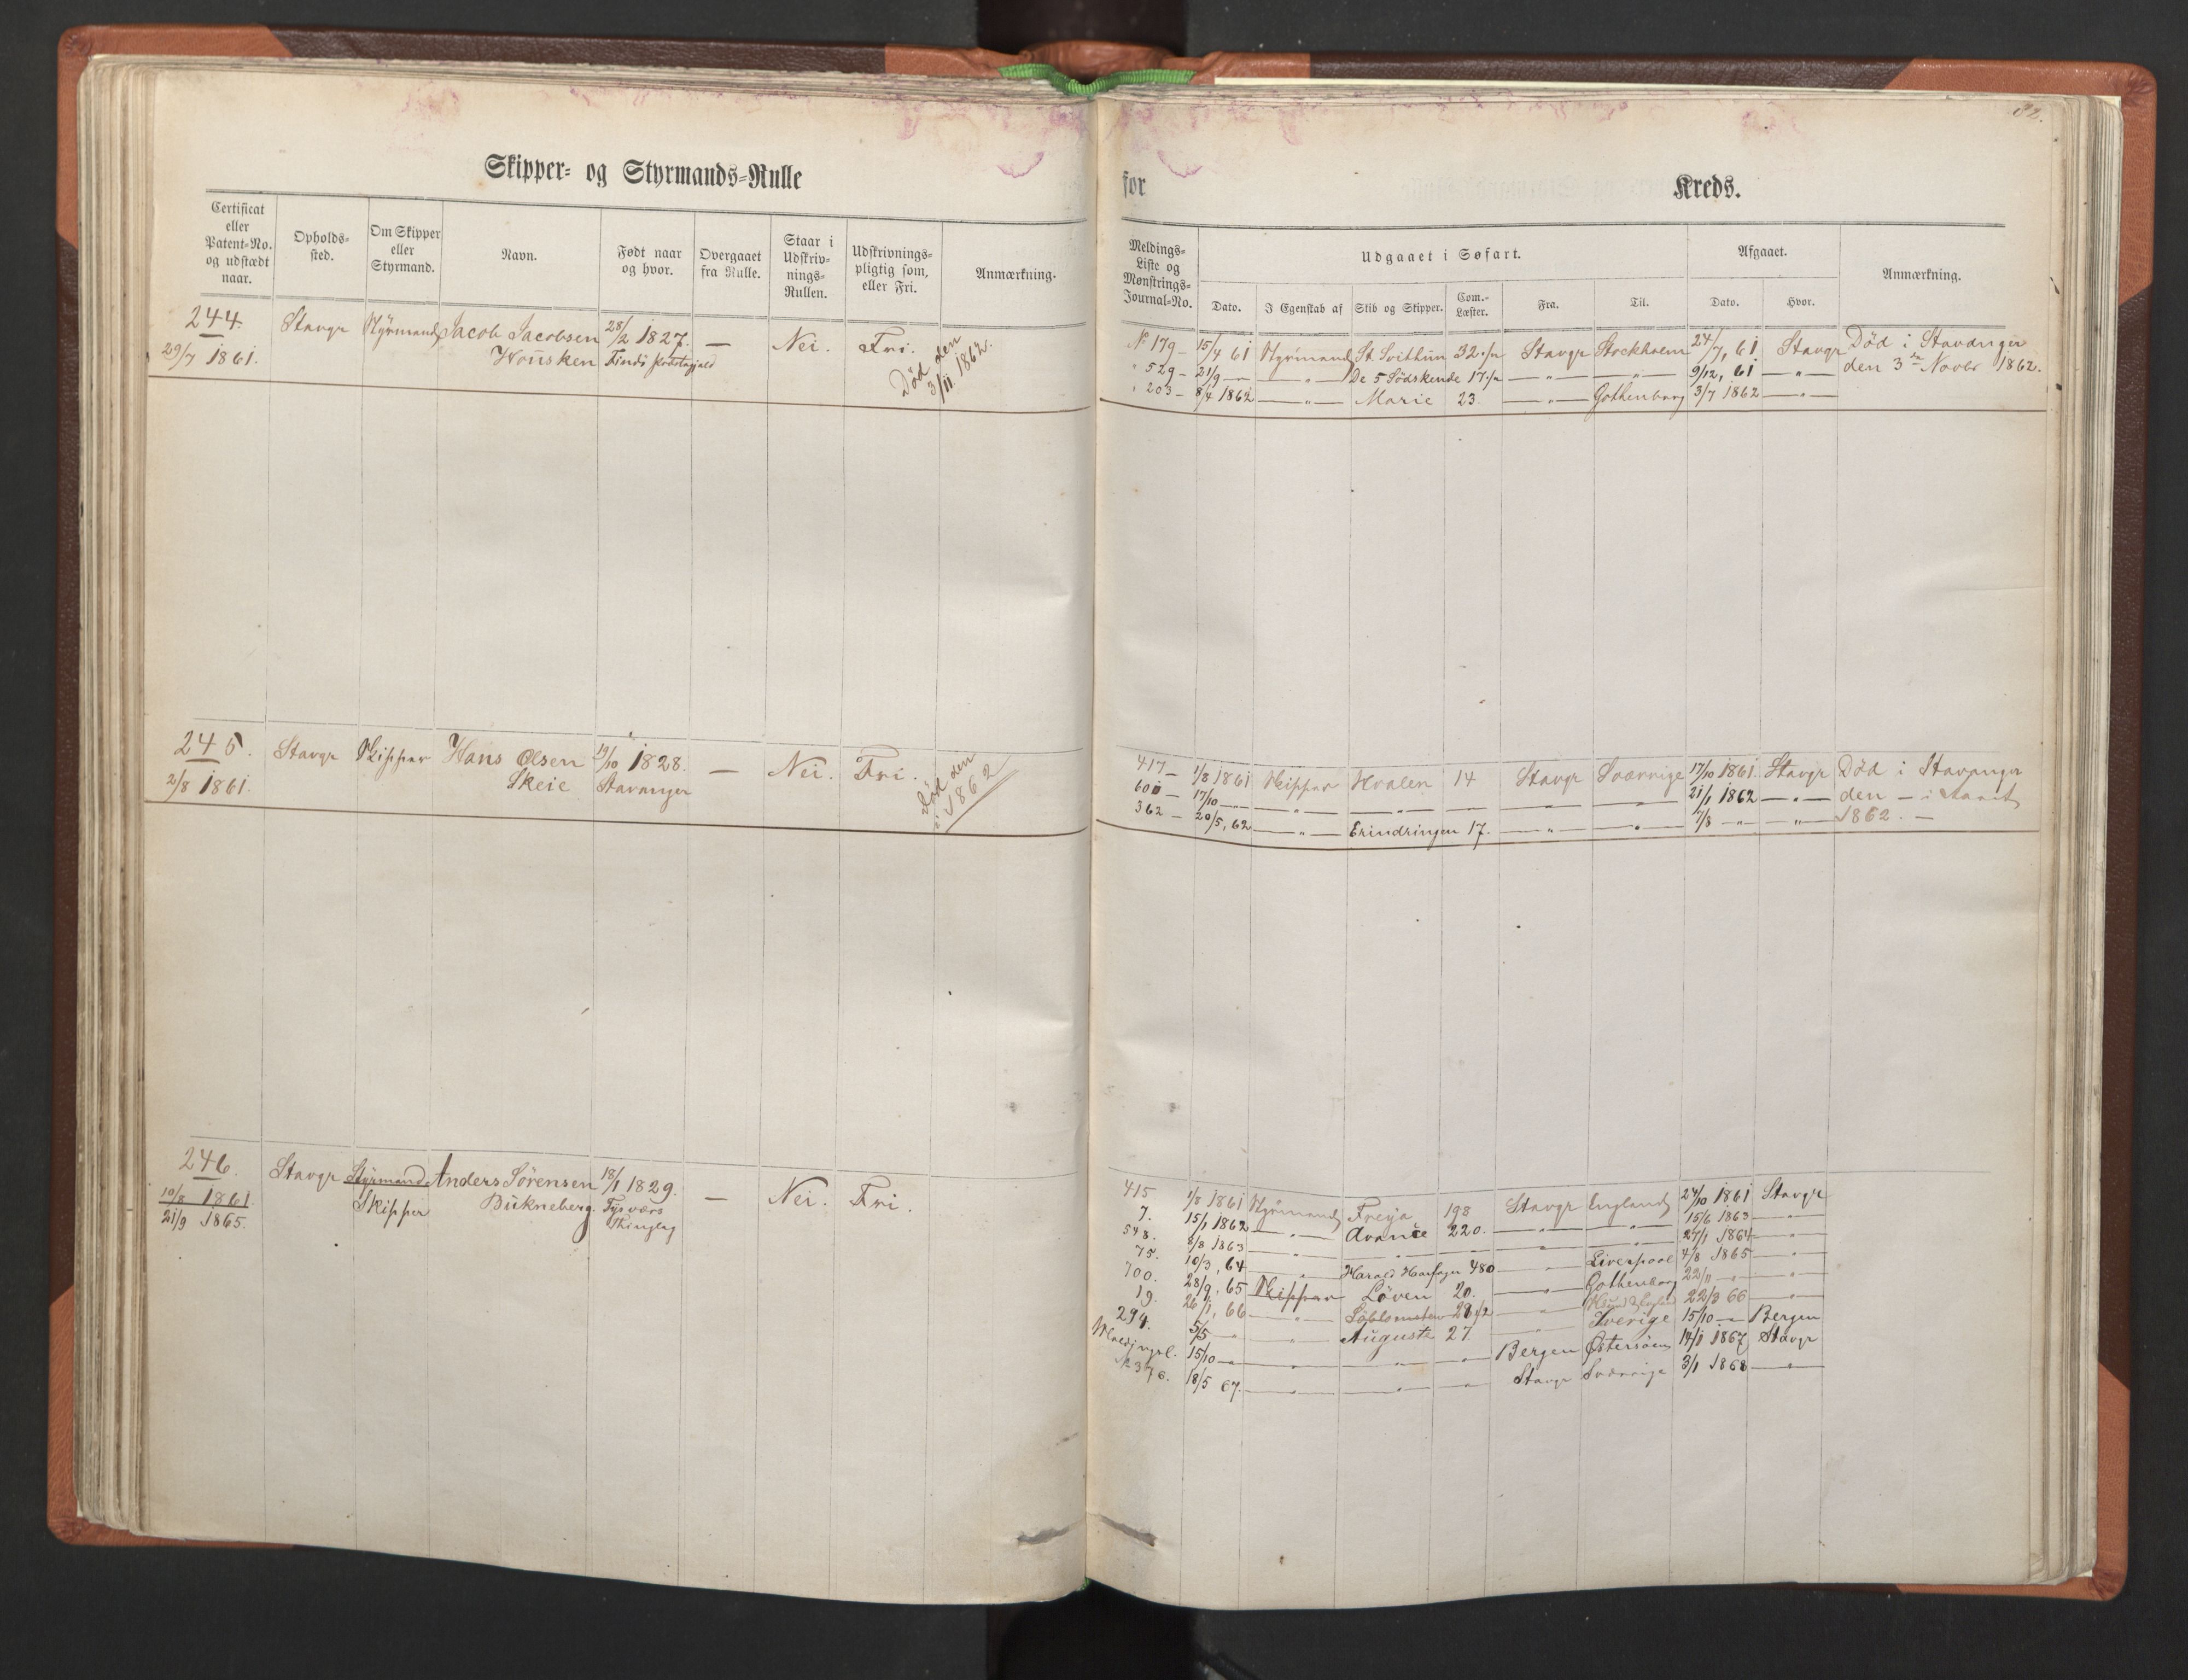 Skipper- og Styrmands-Rulle
Certificat eller Patent-No. og udstædt naar.
Opholds-sted.
Om Skipper eller Styrmand.
Navn.
Født naar og hvor.
Overgaaet fra Rulle.
Staar i Udskriv-nings-Rullen.
Udskrivnings-pligtig som, eller Fri.
Anmærkning.
244. Stavgr Styrmand Jacob Jacobsen 28/2 1827. — Nei. Fri. Død den
29/7 1861. Housken 3/11 1862.
245. Stavgr Skipper Hans Olsen 19/10 1828. — Nei. Fri. Død den
2/8 1861. Skeie Stavanger i 1862
246. Stavgr Styrmand Anders Sörensen 18/1 1829. — Nei. Fri.
10/8 1861. Skipper Bukneberg. Tysværs
21/9 1865. Thinglag
32.
for Kreds.
Meldings-Liste og Mønstrings-Journal-No.
Udgaaet i Søfart.
Afgaaet.
Anmærkning.
Dato. I Egenskab af Skib og Skipper. Com.-Læster. Fra. Til. Dato. Hvor.
No 179 - 15/4 61 Styrmand St Svithun 32 Stavgr Stockholm 24/7, 61 Stavgr Død i Stavanger
" 529 - 21/9 — — " — De 5 Södskende 17 — " — — " — 9/12, 61 — " — den 3 Novbr 1862.
" 203 - 8/4 1862 — " — Marie 23. — " — Gothenborg 3/7 1862 — " —
417 — 1/8 1861 Skipper Hvalen 14 Stavgr Sværrige 17/10 1861. Stavgr Død i Stavanger
600 — 17/10 — — " — — " — — " — — " — 21/1 1862 — " — den — i Aaret
362 — 20/5, 62 — " — Erindringen 17. — " — — " — 7/8 — " — — " — 1862. —
415 1/8 1861 Styrmand Freya 198 Stavgr England 24/10 1861 Stavgr
7. 15/1 1862 — " — Avance 220. — " — — " — 15/6 1863 — " —
548. 8/8 1863 — " — — " — — " — — " — 27/1 1864 — " —
75. 10/3, 64 — " — Harald Haarfager 480 — " — Liverpool 4/8 1865 — " —
700. 28/9, 65 Skipper Löven 20. — " — Gothenborg 22/11 — " — — " —
19. 26/1, 66 — " — 28 1/2 — " — 22/3 66 — " —
294. 5/5 — — " — Auguste 27. — " — Sverige 15/10 — Bergen
15/10 — — " — — " — — " — Bergen Østersöen 14/1 1867 Stavgr
376. 18/5 67. — " — — " — — " — Stavgr Sværrige 3/1 1868 — " —